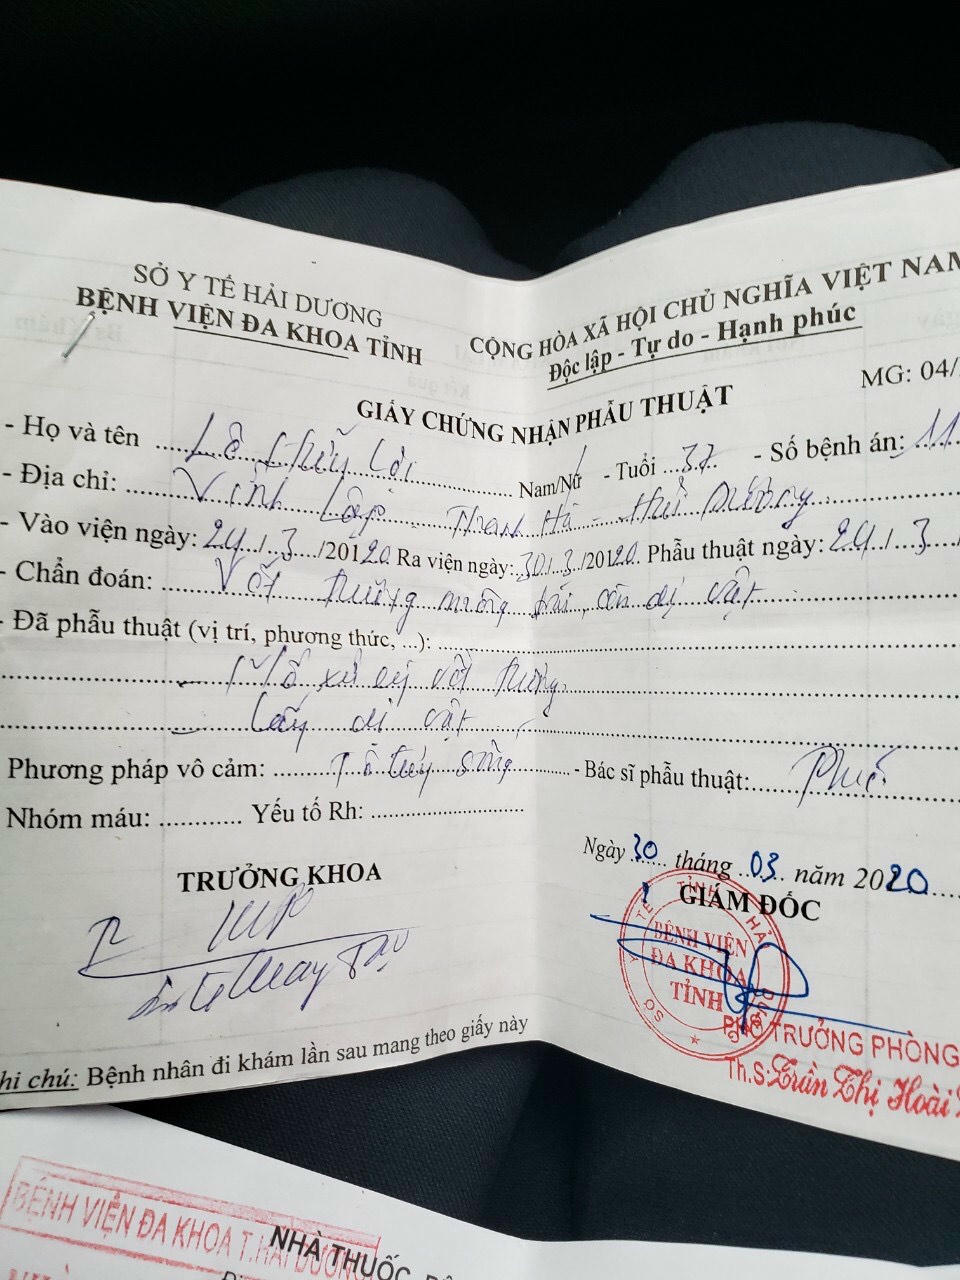 SỞ Y TẾ HẢI DƯƠNG
BỆNH VIỆN ĐA KHOA TỈNH
CỘNG HÒA XÃ HỘI CHỦ NGHĨA VIỆT NAM
Độc lập - Tự do - Hạnh phúc
MG: 04/
GIẤY CHỨNG NHẬN PHẪU THUẬT
- Họ và tên Lê Lời Nam/Nữ - Tuổi 37 - Số bệnh án: 11
- Địa chỉ: Lập Thanh Hà - Hải Dương
- Vào viện ngày: 24/3/20120 Ra viện ngày: 30/3/20120 Phẫu thuật ngày: 24/3
- Chẩn đoán: Vết thương mông trái, còn dị vật
- Đã phẫu thuật (vị trí, phương thức, ...):
- Mổ xử lý vết thương,
- Lấy dị vật
Phương pháp vô cảm: Tê tủy sống - Bác sĩ phẫu thuật:
Nhóm máu: Yếu tố Rh:
Ngày 30 tháng 03 năm 2020
TRƯỞNG KHOA
GIÁM ĐỐC
BỆNH VIỆN
ĐA KHOA
TỈNH
PHÓ TRƯỞNG PHÒNG
Th.S: Trần Thị Hoài
hi chú: Bệnh nhân đi khám lần sau mang theo giấy này
BỆNH VIỆN ĐA KHOA T.HẢI DƯƠNG
NHÀ THUỐC